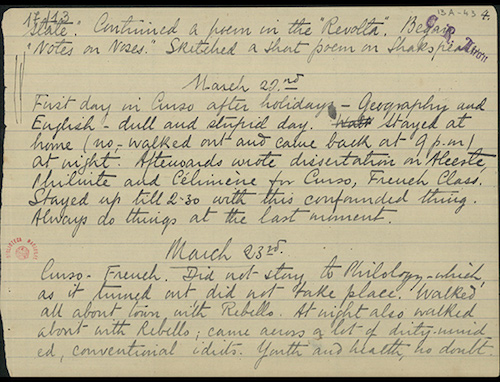 17/113
13A-43 4.
State". Continued a poem in the "Revolta". Began
"Notes on Noses." Sketched a short poem on Shakspeare
March 22nd
First day in Curso after holidays - Geography and
English - dull and stupid day. stayed at
home (no, walked out and came back at 9 p.m)
at night. Afterwards wrote dissertation on Alceste,
Philinte and Célimène for Curso, French Class.
Stayed up till 2.30 with this confounded thing.
Always do things at the last moment.
March 23rd.
Curso - French. Did not stay to Philology - which,
as it turned out, did not take place. Walked
all about town, with Rebello. At night also walked
about with Rebello; came across a lot of dirty-mind
ed, conventional idiots. Youth and health, no doubt.